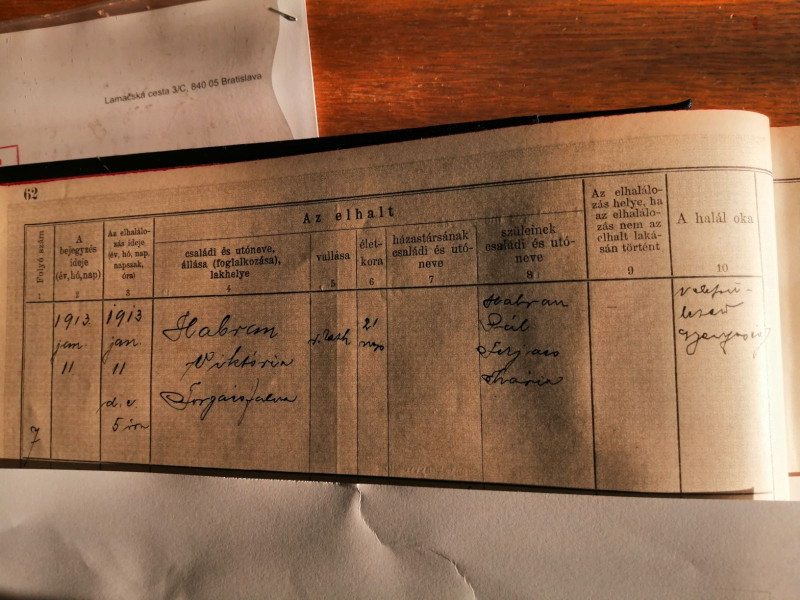 Lamačská cesta 3/C, 840 05 Bratislava
62
Az elhalt
Folyó szám
A
bejegyzés
ideje
(év, hó, nap)
Az elhalálo-
zás ideje
(év, hó, nap,
napszak,
óra)
családi és utóneve,
állása (foglalkozása),
lakhelye
vallása
élet-
kora
házastársának
családi és utó-
neve
szüleinek
családi és utó-
neve
Az elhalálo-
zás helye, ha
az elhalálo-
zás nem az
elhalt laká-
sán történt
A halál oka
1 2 3 4 5 6 7 8 9 10
7
1913
jan.
11
1913
jan
11
d. e.
5 óra
Habran
Viktória
r. kath
21
nap
Habran
Pál
Mária
veleszü-
letett
gyengeség